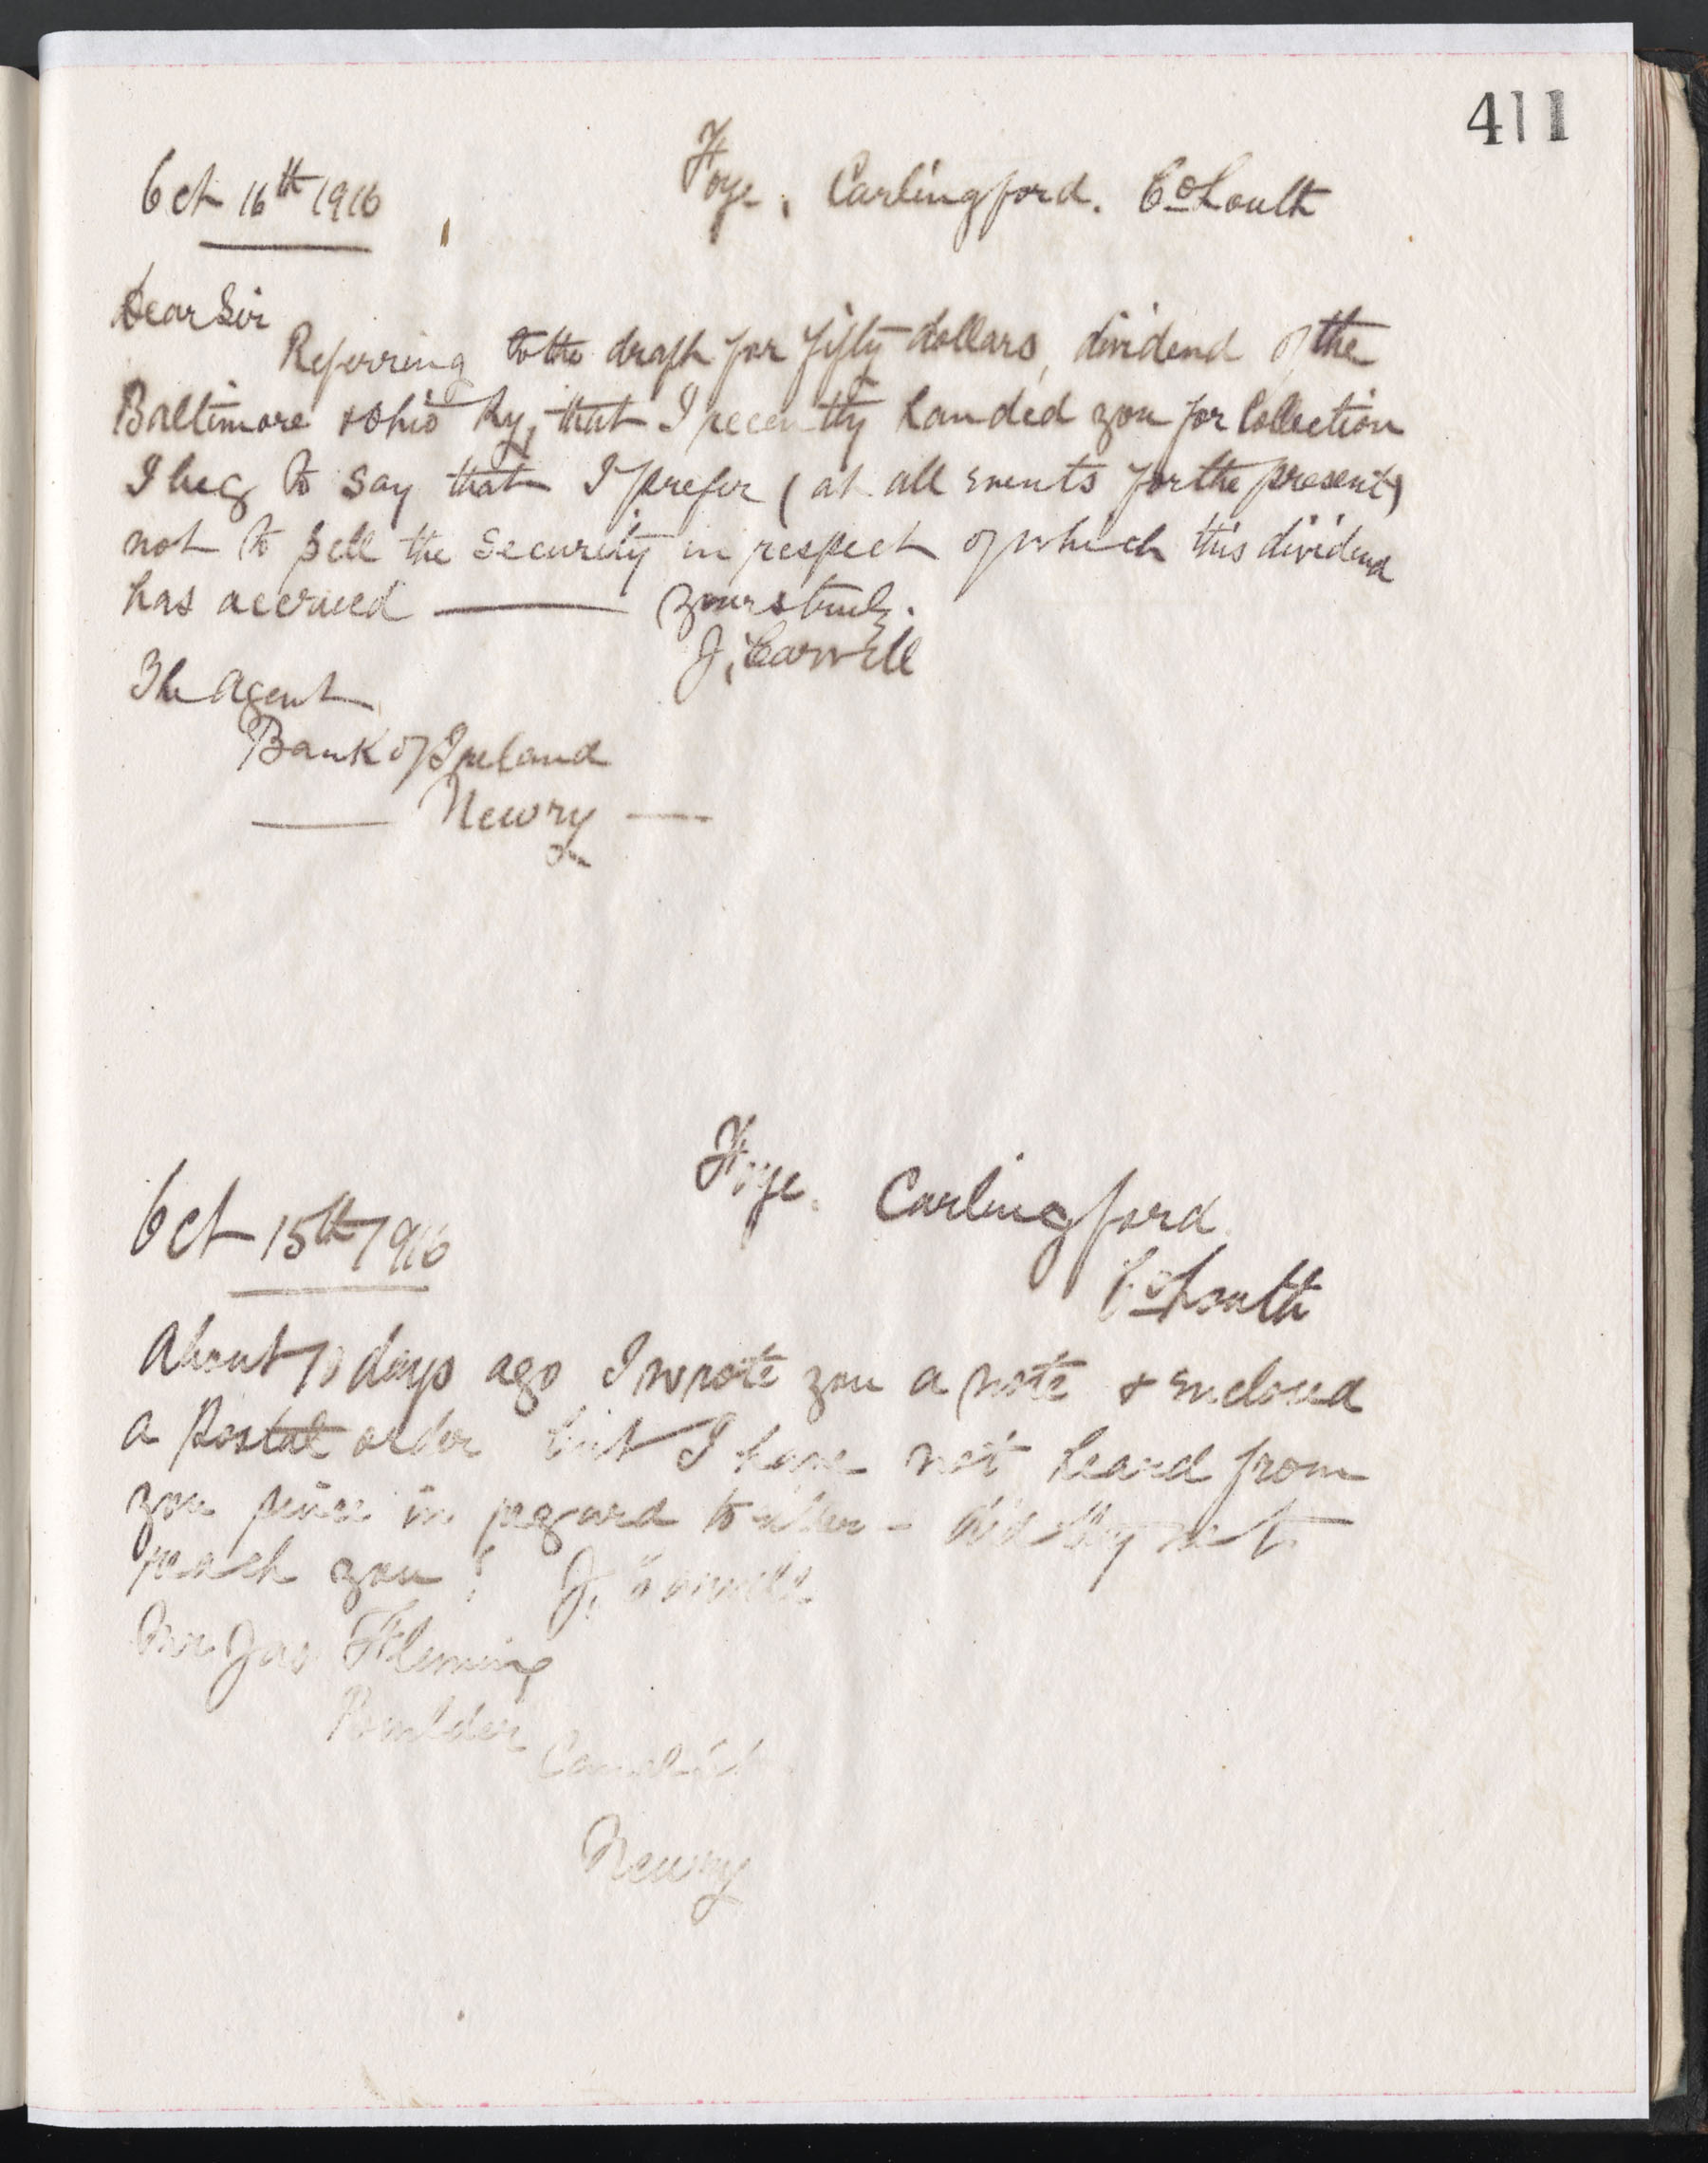 411
Oct 16th 1916
Foye, Carlingford. Co Louth
Dear Sir
Referring to the draft for fifty dollars, dividend of the
Baltimore & Ohio Ry, that I recently handed you for Collection
I beg to say that I prefer (at all events for the present)
not to sell the Security in respect of which this dividend
has accrued — yours truly.
J. Carvill
The Agent
Bank of Ireland
— Newry —
Foye. Carlingford
Oct 15th 1916
Co Louth
About 10 days ago I wrote you a note & enclosed
a Postal order but I have not heard from
you since in regard to either - did they not
reach you? J. Carvill
Mr Jas Fleming
Builder
Newry